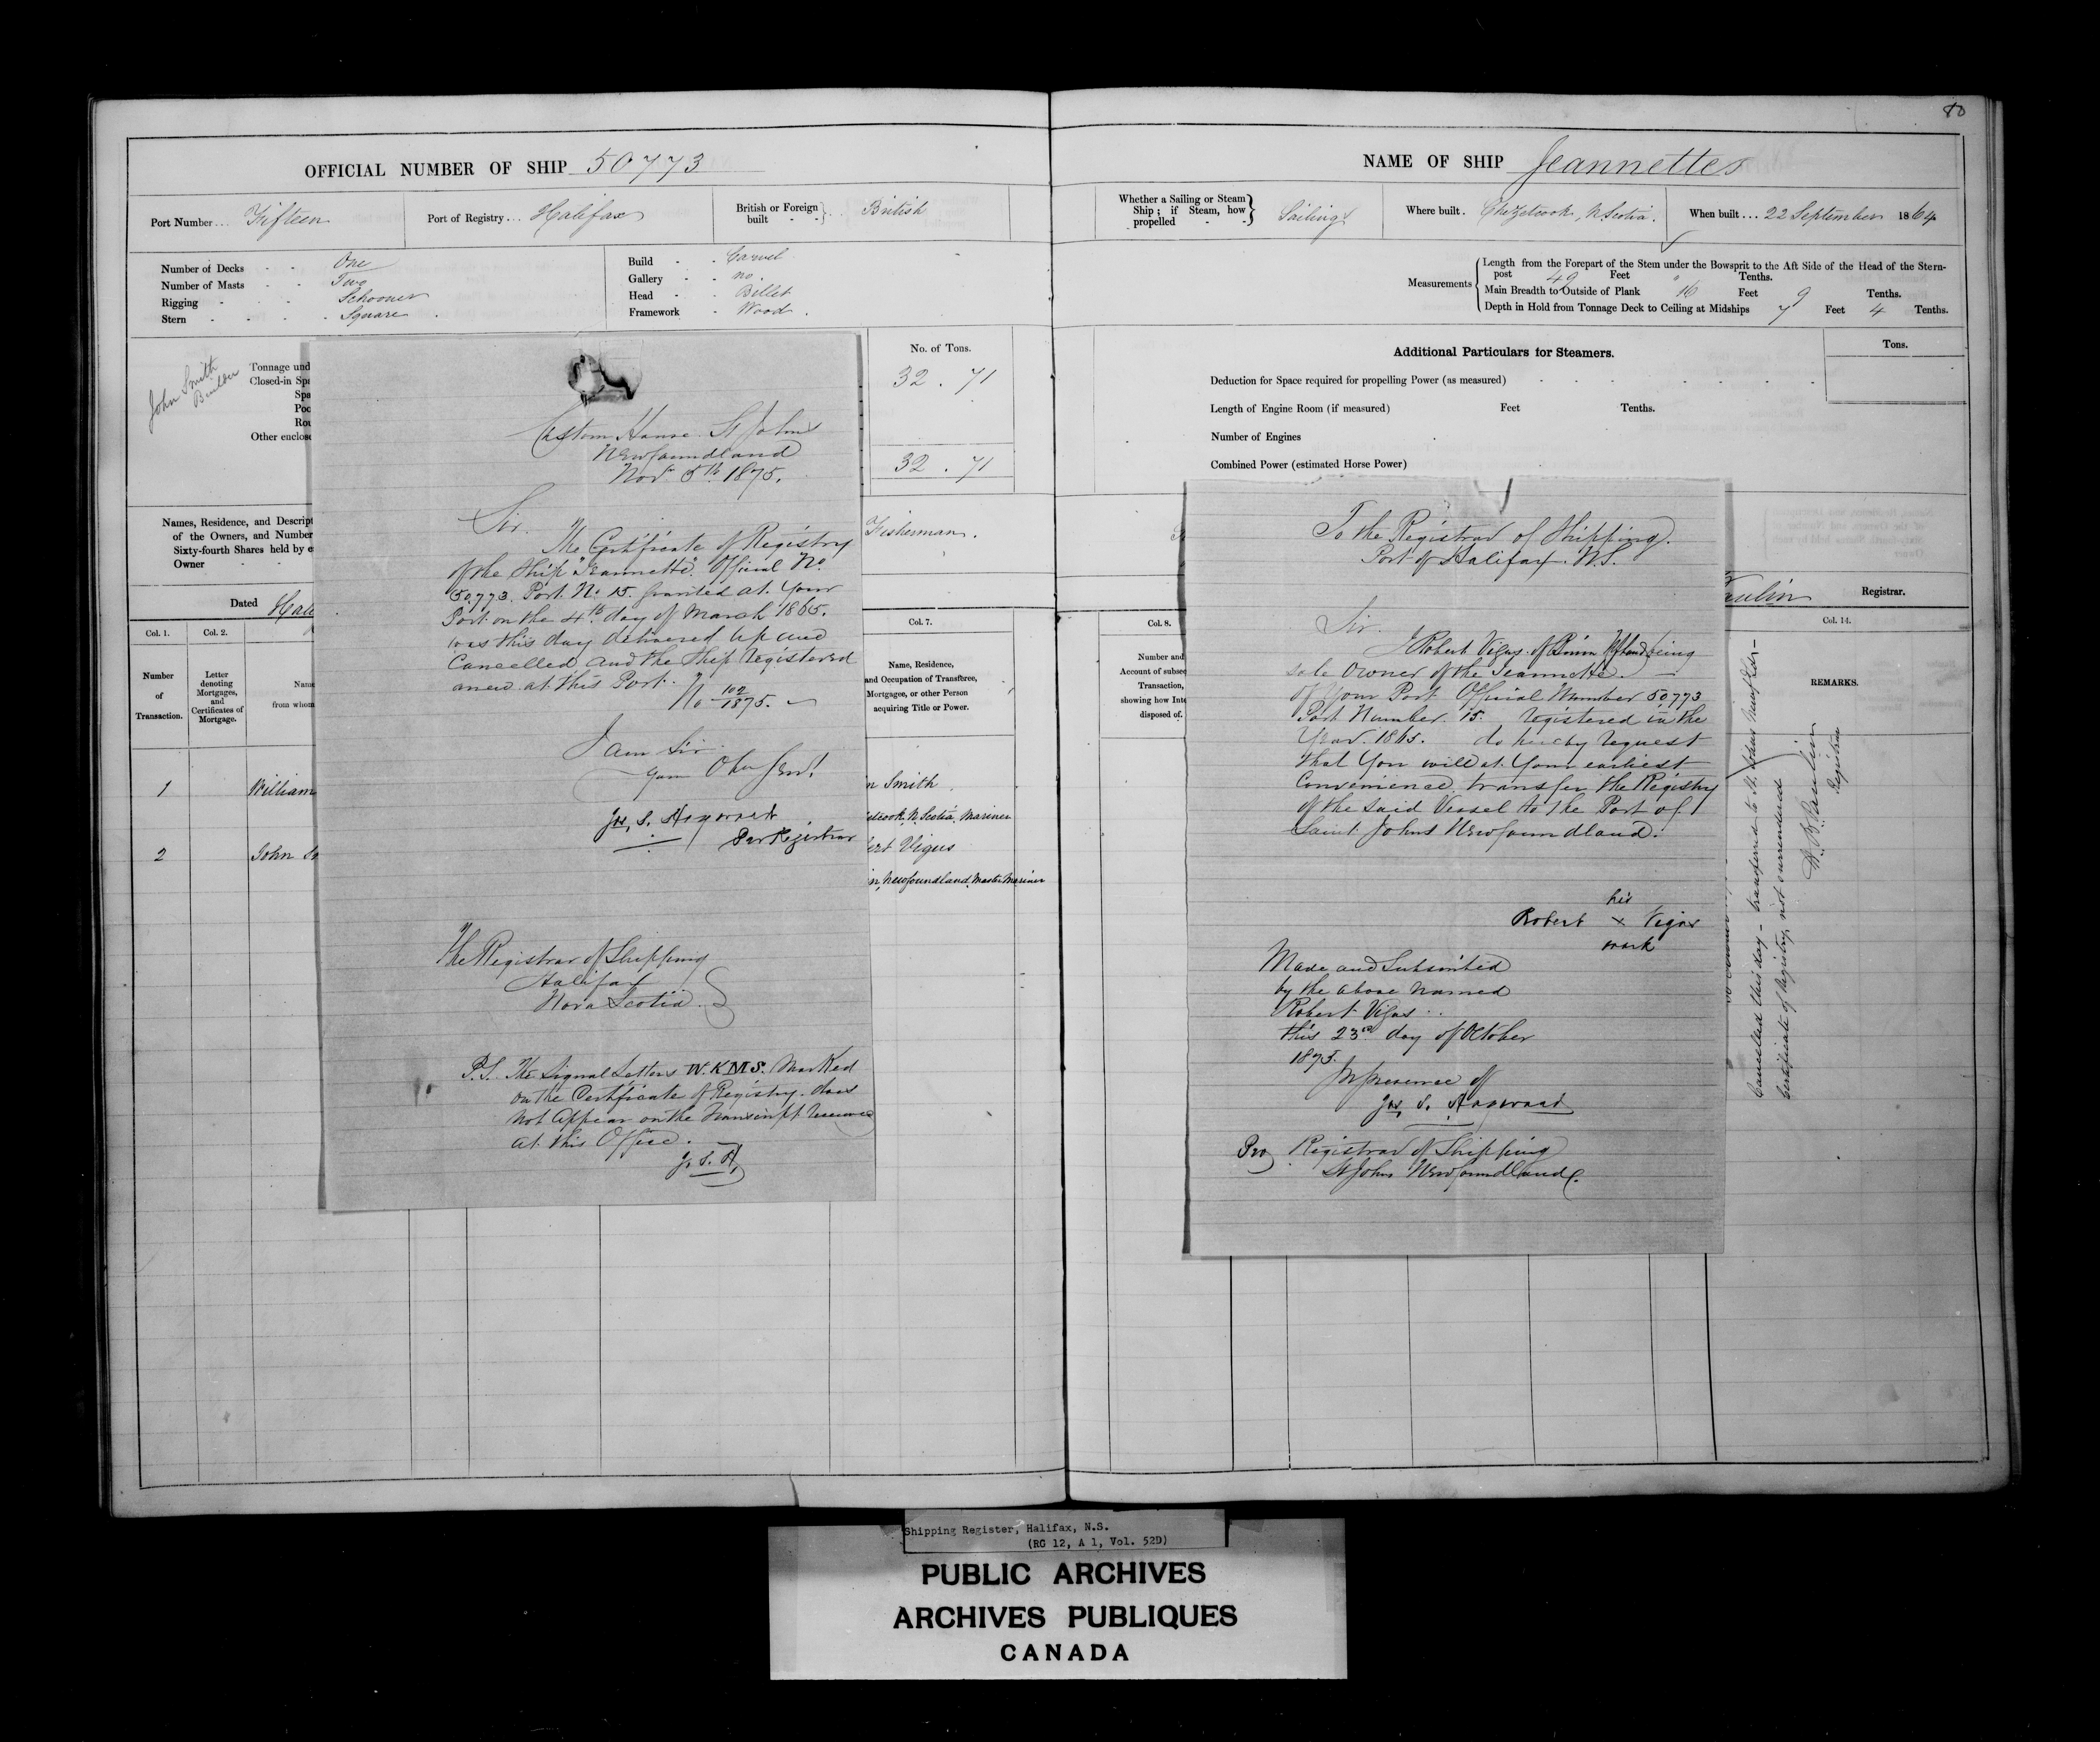 80
OFFICIAL NUMBER OF SHIP 50773
Port Number... Fifteen
Port of Registry... Halifax
British or Foreign built - - } .. British
Number of Decks - - One
Number of Masts - - Two
Rigging - - - Schooner
Stern - - - - Square
Build - - Carvel
Gallery - - no.
Head - - Billet
Framework - Wood.
John Smith
Builder
Tonnage und
Closed-in Spa
Spa
Poo
Rou
Other enclose
No. of Tons.
32 . 71
32 . 71
Names, Residence, and Descript
of the Owners, and Number
Sixty-fourth Shares held by e
Owner - -
Fisherman.
Dated Hali
Col. 1.
Col. 2.
Col. 7.
Number
of
Transaction.
Letter
denoting
Mortgages,
and
Certificates of
Mortgage.
Name
from whom
Name, Residence,
and Occupation of Transferee,
Mortgagee, or other Person
acquiring Title or Power.
1
William
n Smith
etcook, N. Scotia, Mariner
2
John S
ert Vigus
in, Newfoundland, Master Mariner
Custom House St Johns
Newfoundland
Novr 5th 1875.
Sir.
The Certificate of Registry
of the Ship "Jeannette" Official No
50,773. Port No 15. granted at Your
Port on the 4th day of March 1865.
was this day delivered up and
Cancelled and the Ship registered
anew at this Port.
No 102/1875.
I am Sir
Your Obt Servt
Jas. S. Hayward
Pro Registrar
The Registrar of Shipping
Halifax
Nova Scotia
P.S. The Signal Letters W.K.M.S. Marked
on the Certificate of Registry. does
not Appear on the Transcript received
at this Office.
J. S. H.
NAME OF SHIP Jeannettes
Whether a Sailing or Steam
Ship; if Steam, how
propelled - - } Sailing
Where built. Chezetcook, N Scotia.
When built... 22 September 1864
Measurements
Length from the Forepart of the Stem under the Bowsprit to the Aft Side of the Head of the Stern-
post 49 Feet " Tenths.
Main Breadth to Outside of Plank 16 Feet 9 Tenths.
Depth in Hold from Tonnage Deck to Ceiling at Midships 7 Feet 4 Tenths.
Additional Particulars for Steamers.
Tons.
Deduction for Space required for propelling Power (as measured)
Length of Engine Room (if measured) Feet Tenths.
Number of Engines
Combined Power (estimated Horse Power)
aulin Registrar.
Col. 8.
Col. 14.
Number and
Account of subseq
Transaction,
showing how Inte
disposed of.
REMARKS.
To the Registrar of Shipping.
Port of Halifax. N.S.
Sir.
I Robert Vigus. of being
sole Owner of the Jeannette.
of Your Port Official Number 50,773
Port Number. 15. registered in the
Year. 1865. do hereby request
that You will at Your earliest
Convenience transfer the Registry
of the said Vessel to the Port of
Saint Johns Newfoundland.
his
Robert x Vigus
mark
Made and Subscribed
by the above named
Robert Vigus
this 23rd day of October
1875.
In presence of
Jas. S. Hayward
Pro Registrar of Shipping
St Johns Newfoundland.
Cancelled this day - transferred to St. Johns
Certificate of Registry not surrendered
Registrar
Shipping Register, Halifax, N.S.
(RG 12, A 1, Vol. 52D)
PUBLIC ARCHIVES
ARCHIVES PUBLIQUES
CANADA